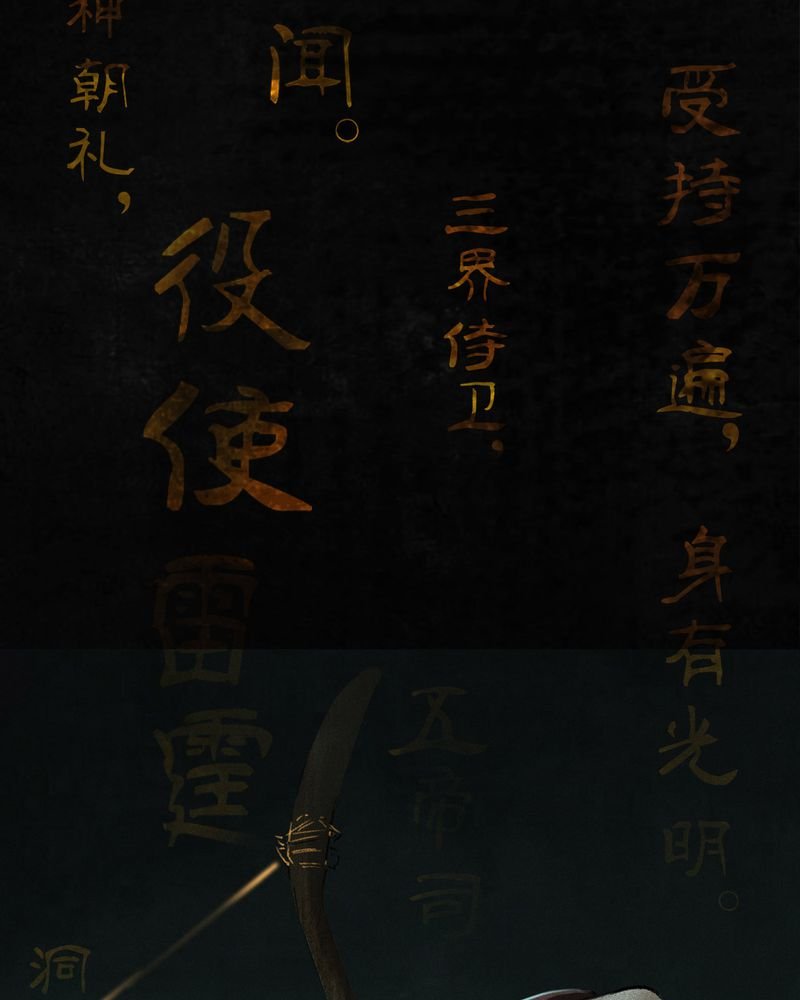 受持万遍，身有光明。
三界侍卫，五帝司
闻。
役使雷霆
神朝礼，
洞